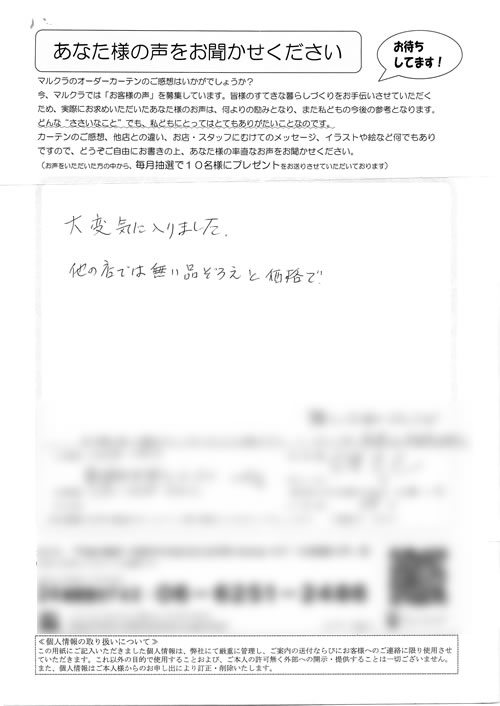 あなた様の声をお聞かせください
お待ち
してます!
マルクラのオーダーカーテンのご感想はいかがでしょうか?
今、マルクラでは「お客様の声」を募集しています。皆様のすてきな暮らしづくりをお手伝いさせていただく
ため、実際にお求めいただいたあなた様のお声は、何よりの励みとなり、また私どもの今後の参考となります。
どんな“ささいなこと”でも、私どもにとってはとてもありがたいことなのです。
カーテンのご感想、他店との違い、お店・スタッフにむけてのメッセージ、イラストや絵など何でもあり
ですので、どうぞご自由にお書きの上、あなた様の率直なお声をお聞かせください。
(お声をいただいた方の中から、毎月抽選で10名様にプレゼントをお送りさせていただいております)
大変気に入りました.
他の店では無い品ぞろえと価格で
06-6251-2486
≪個人情報の取り扱いについて≫
この用紙にご記入いただきました個人情報は、弊社にて厳重に管理し、ご案内の送付ならびにお客様へのご連絡に限り使用させ
ていただきます。これ以外の目的で使用することおよび、ご本人の許可無く外部への開示・提供することは一切ございません。
また、個人情報はご本人様からのお申し出により訂正・削除いたします。